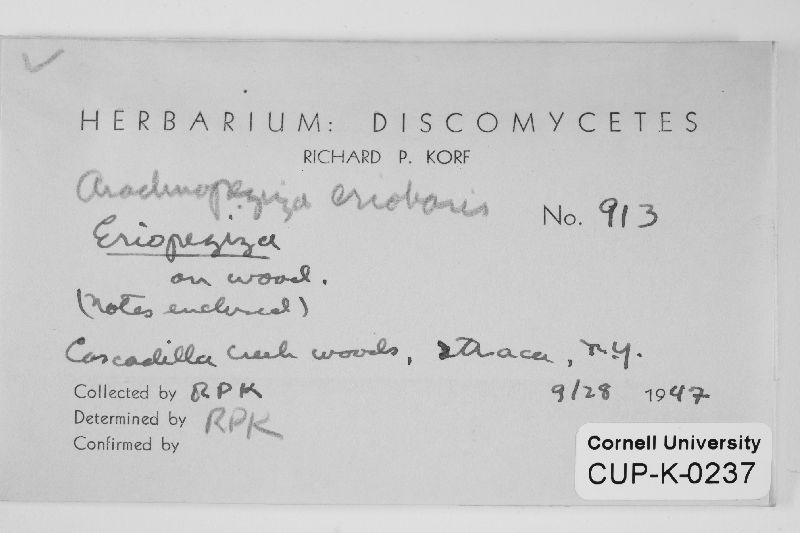 HERBARIUM: DISCOMYCETES
RICHARD P. KORF
Arachnopeziza eriobasis
No. 913
Eriopeziza
on wood.
(Notes enclosed)
Cascadilla Creek woods, Ithaca, N.Y.
Collected by RPK 9/28 1947
Determined by RPK
Confirmed by
Cornell University
CUP-K-0237